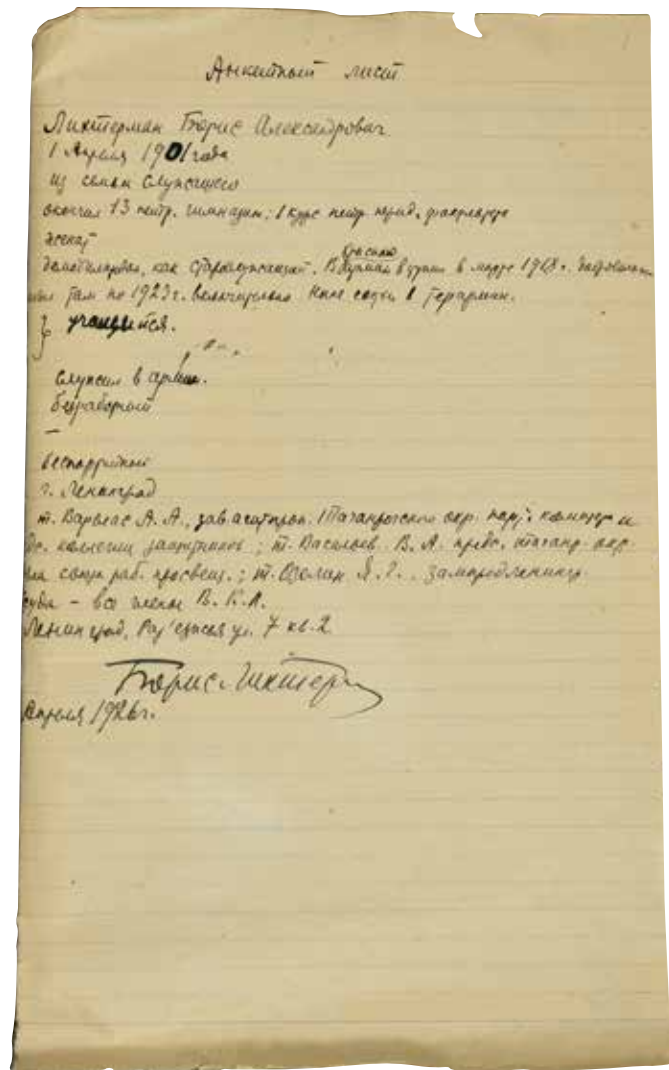 Анкетный лист
Лихтерман Борис Александрович
1 Апреля 1901 года
из семьи служащего
окончил 13 петр. гимназию; 1 курс петр. юрид. факультета
женат
демобилизован, как старослужащий. В Красную армию в марте 1918 г.
там по 1923 г. включительно. Ныне состою в Терармии.
учащийся.
служил в армии.
безработный
–
беспартийный
г. Ленинград
т. Варылас А. А., зав. агитпроп. Таганрогского окр. парт. комитета и
коллегии защитников; т. Васильев В. А. предс. таганр. окр.
союза раб. просвещ.; т. Озолин Я. Г., зампредленингр.
суда – все члены В. К. П.
Ленинград, Раз'езжая ул. 7 кв. 2
Борис Лихтерман
Апреля 1926 г.